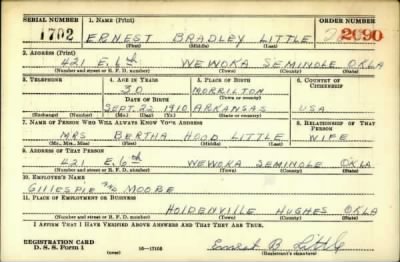 SERIAL NUMBER 1. NAME (Print) ORDER NUMBER
1702 ERNEST BRADLEY LITTLE 2090
(First) (Middle) (Last)
2. ADDRESS (Print)
421 E. 6th WEWOKA SEMINOLE OKLA
(Number and street or R. F. D. number) (Town) (County) (State)
3. TELEPHONE 4. AGE IN YEARS 5. PLACE OF BIRTH 6. COUNTRY OF CITIZENSHIP
30 MORRILTON
DATE OF BIRTH (Town or county)
SEPT. 22 1910 ARKANSAS USA
(Exchange) (Number) (Mo.) (Day) (Yr.) (State or country)
7. NAME OF PERSON WHO WILL ALWAYS KNOW YOUR ADDRESS 8. RELATIONSHIP OF THAT PERSON
MRS BERTHA HOOD LITTLE WIFE
(Mr., Mrs., Miss) (First) (Middle) (Last)
9. ADDRESS OF THAT PERSON
421 E. 6th WEWOKA SEMINOLE OKLA
(Number and street or R. F. D. number) (Town) (County) (State)
10. EMPLOYER'S NAME
GILLESPIE AND MOORE
11. PLACE OF EMPLOYMENT OR BUSINESS
HOLDENVILLE HUGHES OKLA
(Number and street or R. F. D. number) (Town) (County) (State)
I AFFIRM THAT I HAVE VERIFIED ABOVE ANSWERS AND THAT THEY ARE TRUE.
REGISTRATION CARD
D. S. S. Form 1 16—17105 Ernest B Little
(Registrant's signature)